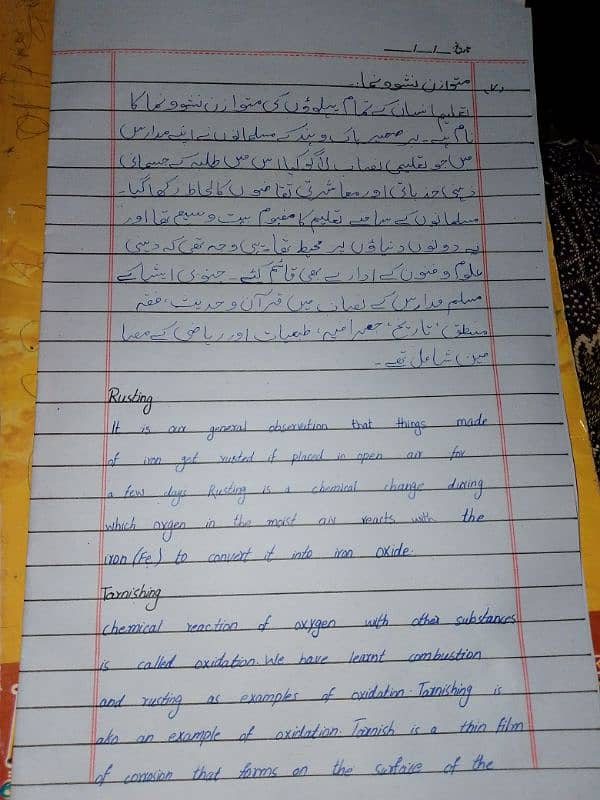 تاریخ __/__/__
متوازن نشوونما:۔
تعلیم انسان کے تمام پہلوؤں کی متوازن نشوونما کا
نام ہے۔ برصغیر پاک و ہند کے مسلمانوں نے اپنے مدارس
میں جو تعلیمی نصاب لاگو کیا اس میں طلبہ کے جسمانی
ذہنی جذباتی اور معاشرتی تقاضوں کا لحاظ رکھا گیا۔
مسلمانوں کے سامنے تعلیم کا مفہوم بہت وسیع تھا اور
یہ دونوں دنیاؤں پر محیط تھا یہی وجہ تھی کہ دینی
علوم و فنون کے ادارے بھی قائم کئے۔ جنوبی ایشیا کے
مسلم مدارس کے نصاب میں قرآن و حدیث، فقہ
منطق، تاریخ، جغرافیہ، طبعیات اور ریاضی کے مضا
مین شامل تھے۔
Rusting
It is our general observation that things made
of iron get rusted if placed in open air for
a few days Rusting is a chemical change during
which oxygen in the moist air reacts with the
iron (Fe) to convert it into iron oxide.
Tarnishing
Chemical reaction of oxygen with other substances
is called oxidation. We have learnt combustion
and rusting as examples of oxidation. Tarnishing is
also an example of oxidation. Tarnish is a thin film
of corrosion that forms on the surface of the